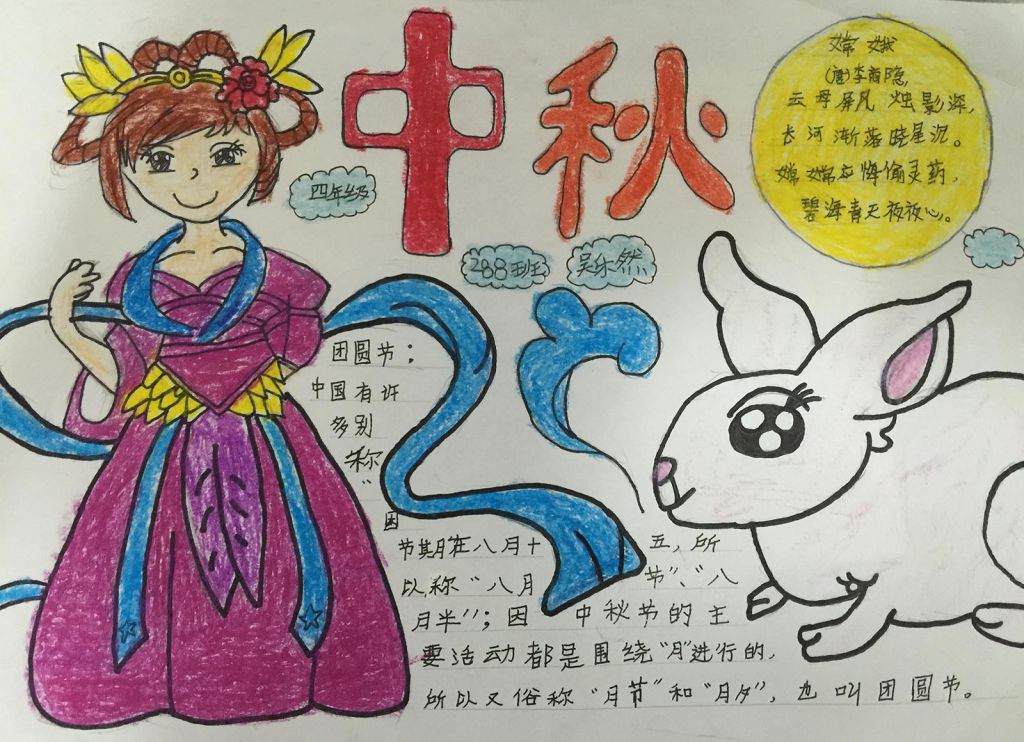 中秋
嫦娥
(唐)李商隐
云母屏风 烛影深,
长河渐落晓星沉。
嫦嫦应悔偷灵药,
碧海青天夜夜心。
四年级
288班
吴乐然
团圆节;
中国有许
多别
称
“
因
节期在八月十五,所
以称“八月节”、“八
月半”;因中秋节的主
要活动都是围绕“月”进行的,
所以又俗称“月节”和“月夕”,也叫团圆节。